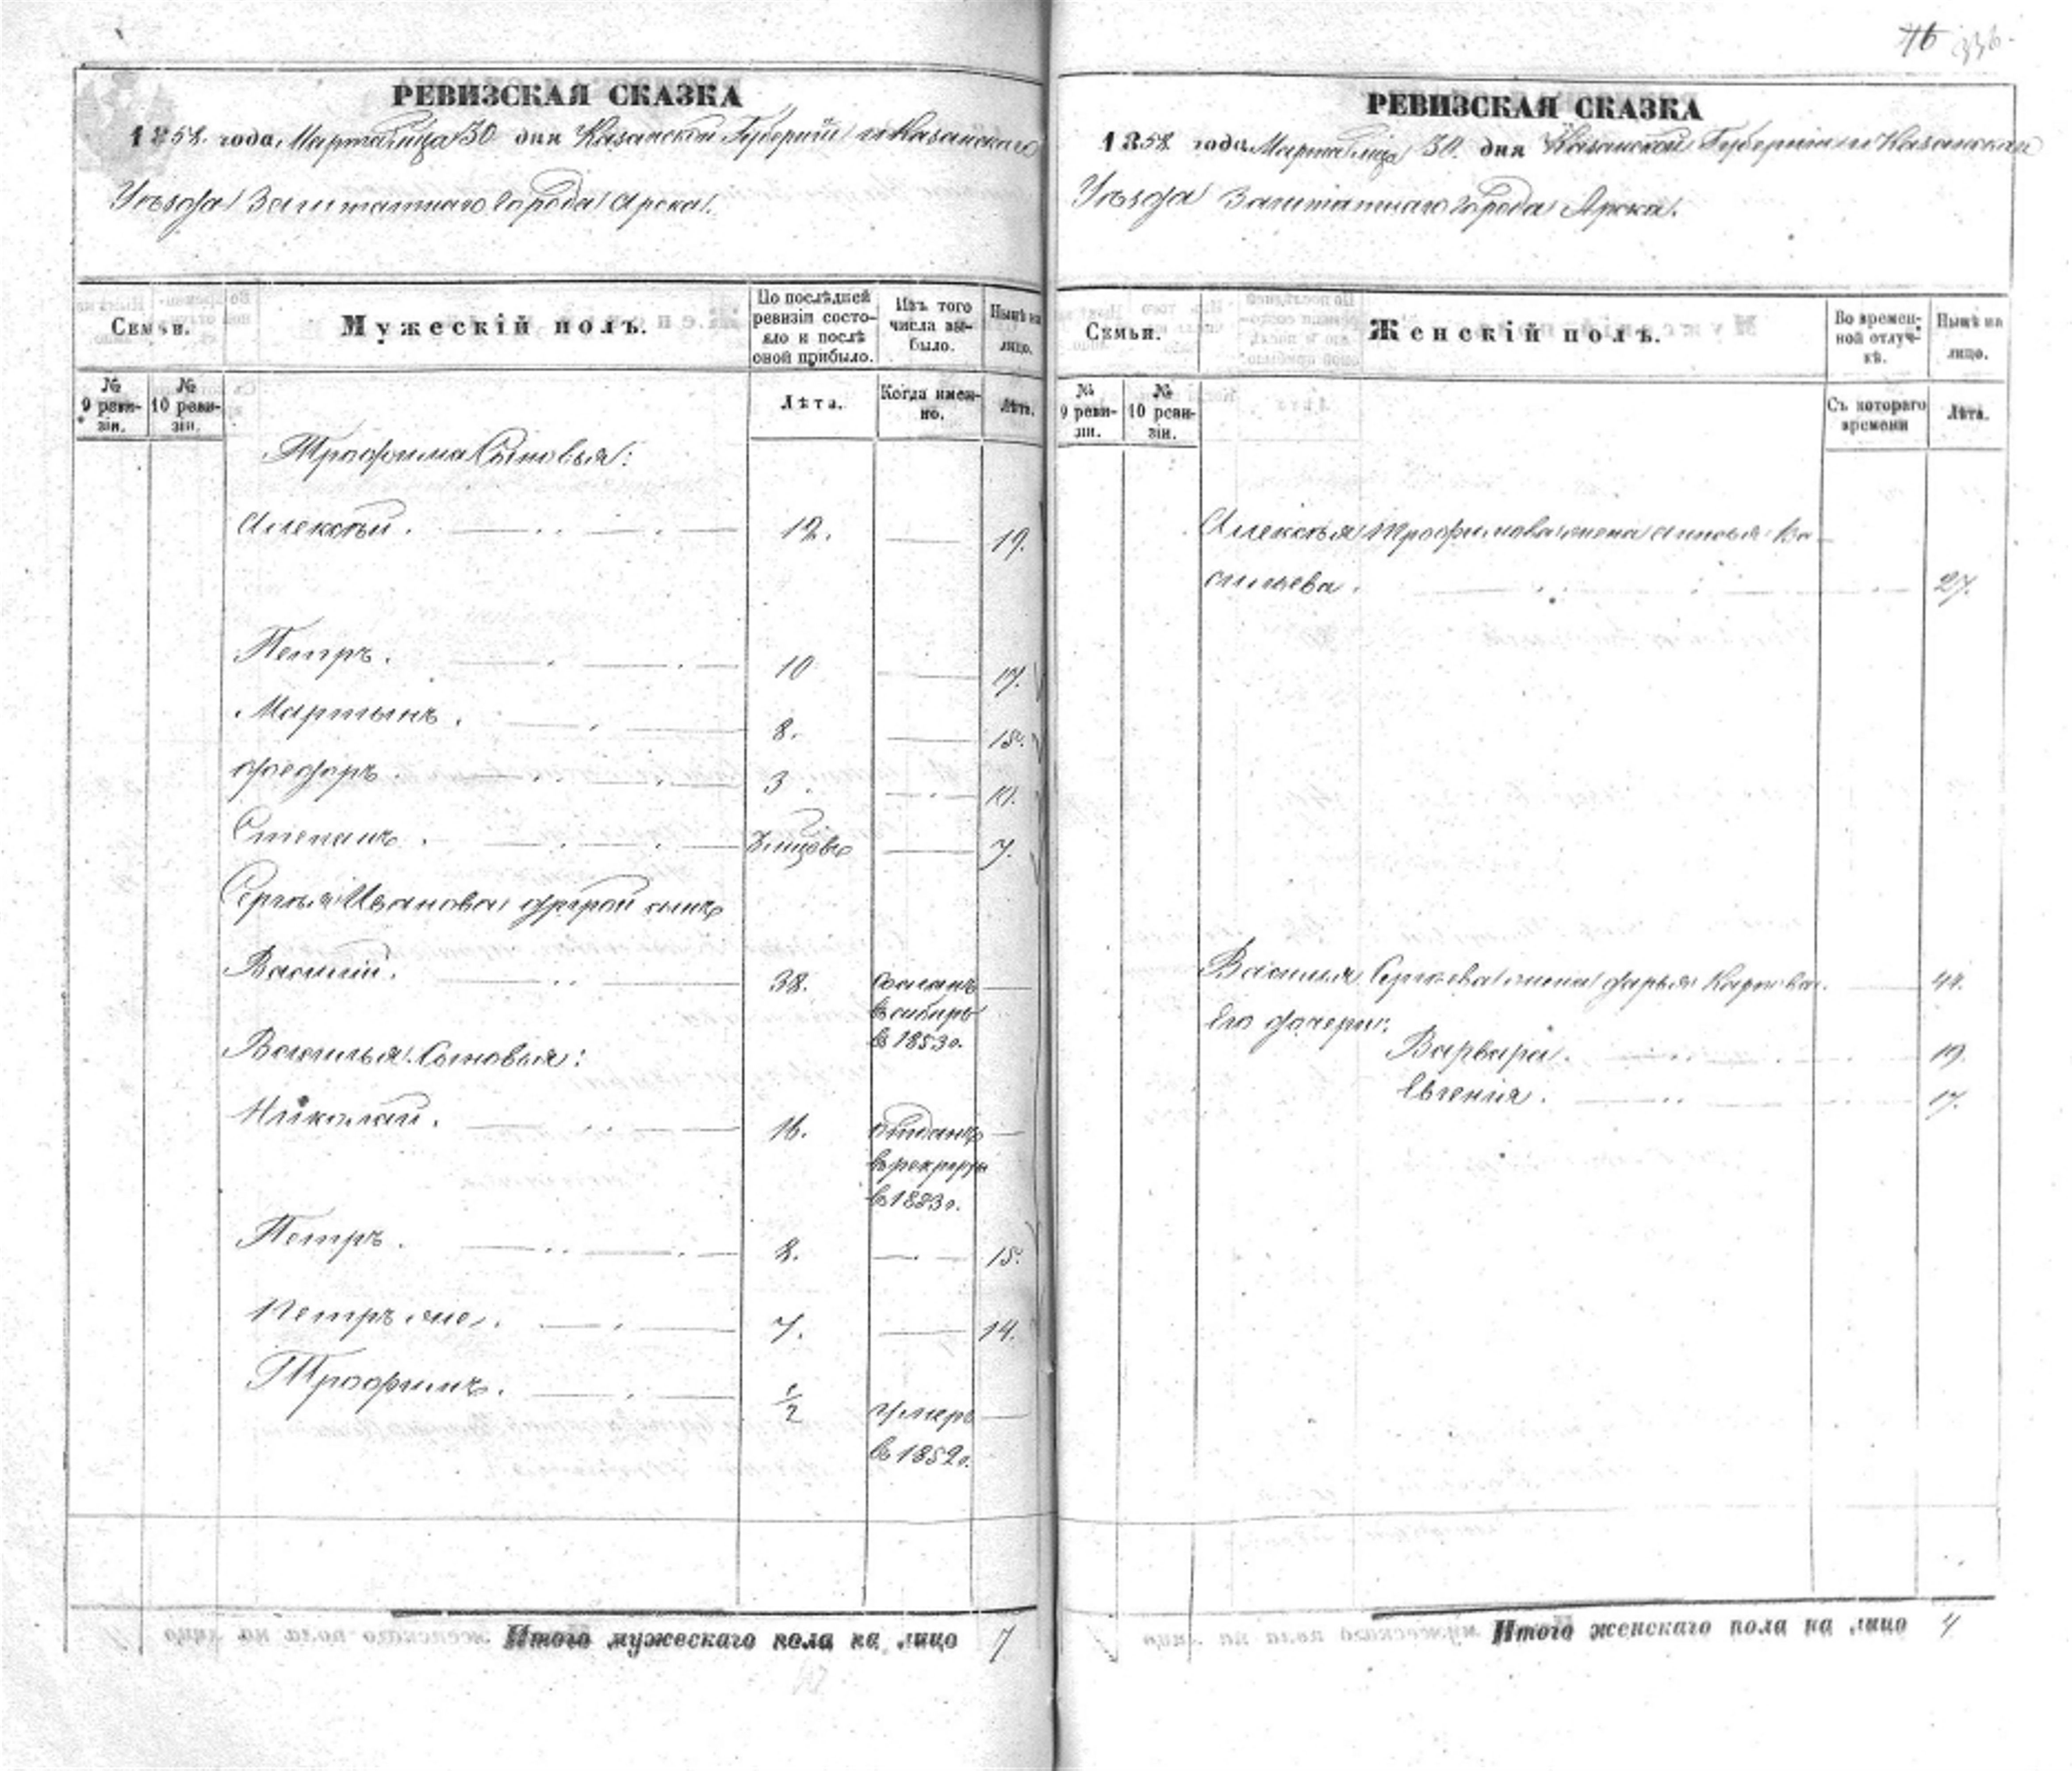 46 336.
РЕВИЗСКАЯ СКАЗКА
1858. года, Марта м-ца 30 дня Казанской Губернии и Казанскаго
Уѣзда Заштатнаго города Арска.
Семьи.
Мужескій полъ.
По послѣдней ревизіи состояло и послѣ оной прибыло.
Изъ того числа выбыло.
Нынѣ на лицо.
№ 9 ревизіи.
№ 10 ревизіи.
Лѣта.
Когда именно.
Лѣта.
Трофима Сыновья:
Алексѣй. 12. 19.
Петръ. 10 17.
Мартынъ. 8. 15.
Федоръ. 3. 10.
Степанъ. 7.
Сергѣя Иванова другой сынъ
Василій. 38. сосланъ
въ сибирь
в 1853 г.
Василья Сыновья:
Николай. 16. отданъ
въ рекруты
в 1853 г.
Петръ. 8. 15.
Петръ же. 7. 14.
Трофимъ. 1/2 умеръ
в 1852 г.
Итого мужескаго пола на лицо 7
РЕВИЗСКАЯ СКАЗКА
1858 года Марта м-ца 30. дня Казанской Губернии и Казанскаго
Уѣзда Заштатнаго города Арска.
Семьи.
Женскій полъ.
Во временной отлучкѣ.
Нынѣ на лицо.
№ 9 ревизіи.
№ 10 ревизіи.
Съ котораго времени
Лѣта.
Алексѣя Трофимова жена Ва-
сильева. 27.
Василья Сергѣева жена Дарья Карпова. 44.
Его дочери:
Варвара. 19.
Евгенія. 17.
Итого женскаго пола на лицо 4